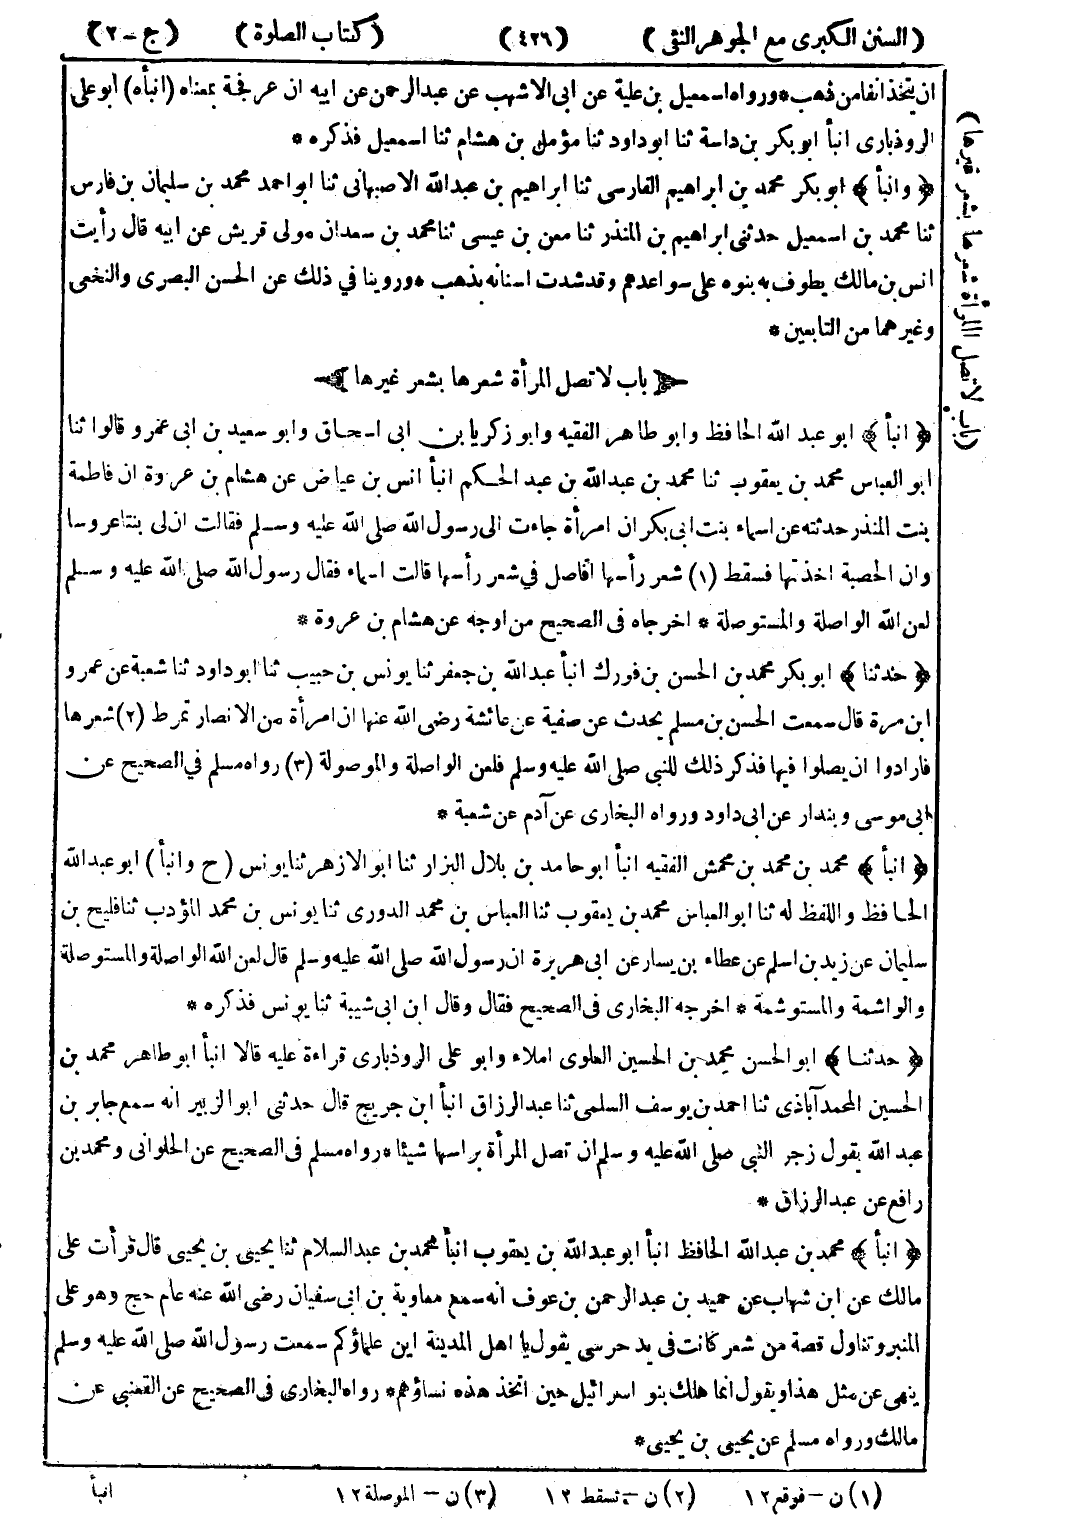 (السنن الكبرى مع الجوهر النقى) (٤٢٦) (كتاب الصلوة) (ج - ٢)
ان يتخذ انفا من ذهب * ورواه اسمعيل بن علية عن ابى الاشهب عن عبد الرحمن عن ابيه ان عرفجة بمعناه (انبأه) ابو على
الروذبارى انبأ ابو بكر بن داسة ثنا ابو داود ثنا مؤمل بن هشام ثنا اسمعيل فذكره *
﴿ وانبأ ﴾ ابو بكر محمد بن ابراهيم الفارسى ثنا ابراهيم بن عبد الله الاصبهانى ثنا ابو احمد محمد بن سليمان بن فارس
ثنا محمد بن اسمعيل حدثنى ابراهيم بن المنذر ثنا معن بن عيسى ثنا محمد بن سعدان مولى قريش عن ابيه قال رأيت
انس بن مالك يطوف به بنوه على سواعدهم وقد شدت اسنانه بذهب * وروينا في ذلك عن الحسن البصرى والنخعى
وغيرهما من التابعين *
باب لا تصل المرأة شعرها بشعر غيرها
(باب لا تصل المرأة شعرها بشعر غيرها)
﴿ انبأ ﴾ ابو عبد الله الحافظ وابو طاهر الفقيه وابو زكريا بن ابى اسحاق وابو سعيد بن ابى عمرو قالوا ثنا
ابو العباس محمد بن يعقوب ثنا محمد بن عبد الله بن عبد الحكم انبأ انس بن عياض عن هشام بن عروة ان فاطمة
بنت المنذر حدثته عن اسماء بنت ابى بكر ان امرأة جاءت الى رسول الله صلى الله عليه وسلم فقالت ان لى بنتا عروسا
وان الحصبة اخذتها فسقط (١) شعر رأسها افاصل في شعر رأسها قالت اسماء فقال رسول الله صلى الله عليه وسلم
لعن الله الواصلة والمستوصلة * اخرجاه فى الصحيح من اوجه عن هشام بن عروة *
﴿ حدثنا ﴾ ابو بكر محمد بن الحسن بن فورك انبأ عبد الله بن جعفر ثنا يونس بن حبيب ثنا ابو داود ثنا شعبة عن عمرو
ابن مرة قال سمعت الحسن بن مسلم يحدث عن صفية عن عائشة رضى الله عنها ان امرأة من الانصار تمرط (٢) شعرها
فارادوا ان يصلوا فيها فذكر ذلك للنبي صلى الله عليه وسلم فلعن الواصلة والموصولة (٣) رواه مسلم في الصحيح عن
ابى موسى وبندار عن ابى داود ورواه البخارى عن آدم عن شعبة *
﴿ انبأ ﴾ محمد بن محمد بن محمش الفقيه انبأ ابو حامد بن بلال البزار ثنا ابو الازهر ثنا يونس (ح وانبأ) ابو عبد الله
الحافظ واللفظ له ثنا ابو العباس محمد بن يعقوب ثنا العباس بن محمد الدورى ثنا يونس بن محمد المؤدب ثنا فليح بن
سليمان عن زيد بن اسلم عن عطاء بن يسار عن ابى هريرة ان رسول الله صلى الله عليه وسلم قال لعن الله الواصلة والمستوصلة
والواشمة والمستوشمة * اخرجه البخارى فى الصحيح فقال وقال ابن ابى شيبة ثنا يونس فذكره *
﴿ حدثنا ﴾ ابو الحسن محمد بن الحسين العلوى املاء وابو على الروذبارى قراءة عليه قالا انبأ ابو طاهر محمد بن
الحسين المحمدآباذى ثنا احمد بن يوسف السلمى ثنا عبد الرزاق انبأ ابن جريج قال حدثنى ابو الزبير انه سمع جابر بن
عبد الله يقول زجر النبى صلى الله عليه وسلم ان تصل المرأة براسها شيئا * رواه مسلم فى الصحيح عن الحلوانى ومحمد بن
رافع عن عبد الرزاق *
﴿ انبأ ﴾ محمد بن عبد الله الحافظ انبأ ابو عبد الله بن يعقوب انبأ محمد بن عبد السلام ثنا يحيى بن يحيى قال قرأت على
مالك عن ابن شهاب عن حميد بن عبد الرحمن بن عوف انه سمع معاوية بن ابى سفيان رضى الله عنه عام حج وهو على
المنبر وتناول قصة من شعر كانت فى يد حرسى يقول يا اهل المدينة اين علماؤكم سمعت رسول الله صلى الله عليه وسلم
ينهى عن مثل هذا ويقول انما هلك بنو اسرائيل حين اتخذ هذه نساؤهم * رواه البخارى فى الصحيح عن القعنبى عن
مالك ورواه مسلم عن يحيى بن يحيى *
(١) ن - فوقع ١٢ (٢) ن - تسقط ١٢ (٣) ن - الموصلة ١٢ انبأ